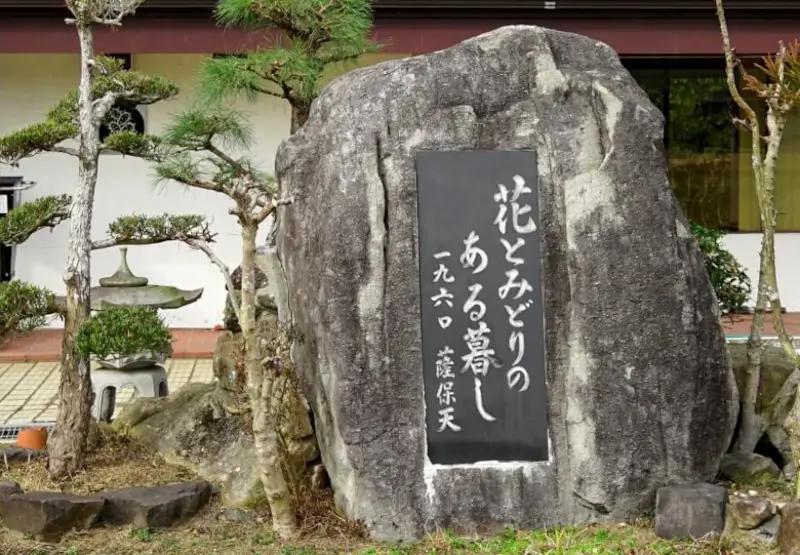 花とみどりの
ある暮し
一九六〇 薩保天